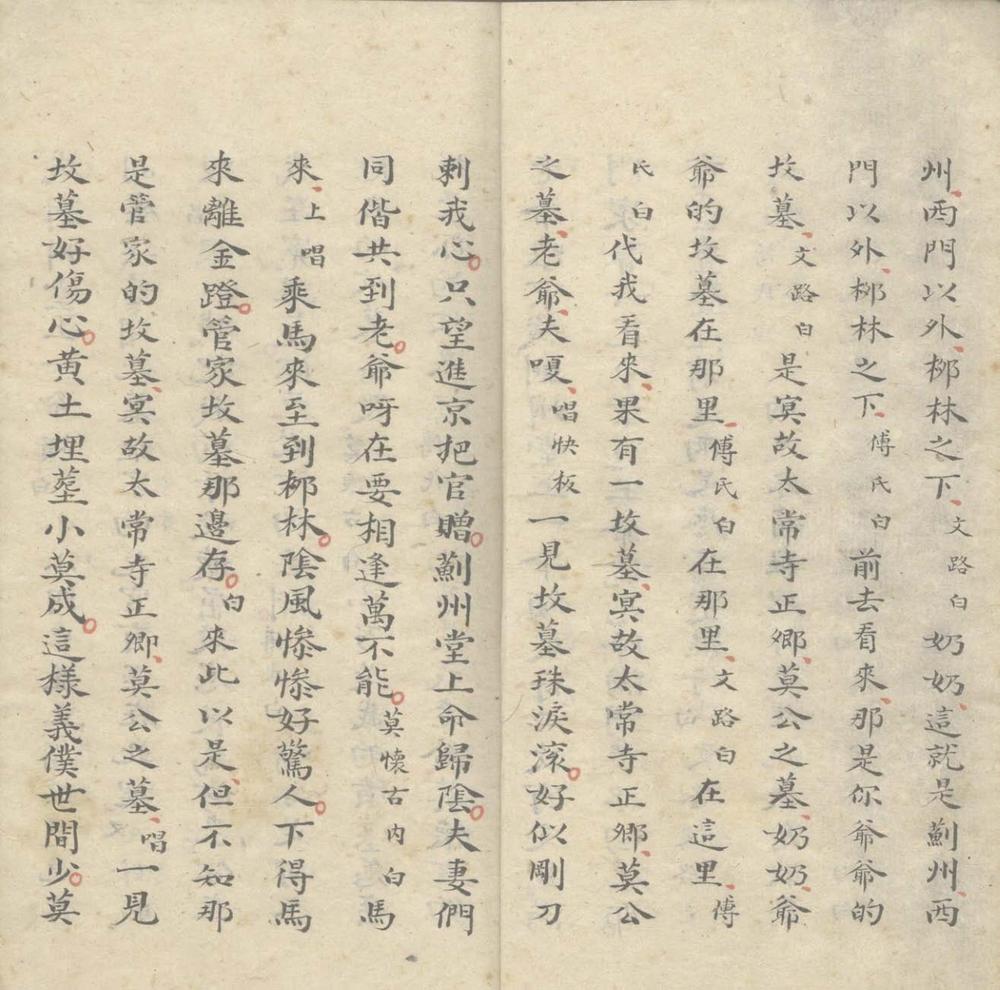 州、西門以外、柳林之下、文路白奶奶、這就是薊州、西
門以外、柳林之下、傅氏白前去看來、那是你爺爺的
坟墓、文路白是冥故太常寺正卿、莫公之墓、奶奶、爺
爺的坟墓在那里、傅氏白在那里、文路白在這里、傅
氏白代我看來、果有一坟墓、冥故太常寺正卿、莫公
之墓、老爺、夫嗄、唱快板一見坟墓珠淚滚。好似剛刀
刺我心。只望進京把官贈。薊州堂上命歸陰。夫妻們
同偕共到老。爺呀在要相逢萬不能。莫懷古内白馬
來、上唱乘馬來至到柳林。陰風惨惨好驚人。下得馬
來離金蹬。管家坟墓那邊存。白來此以是、但不知那
是管家的坟墓、冥故太常寺正卿、莫公之墓、唱一見
坟墓好傷心。黄土埋塟小莫成。這樣義僕世間少。莫